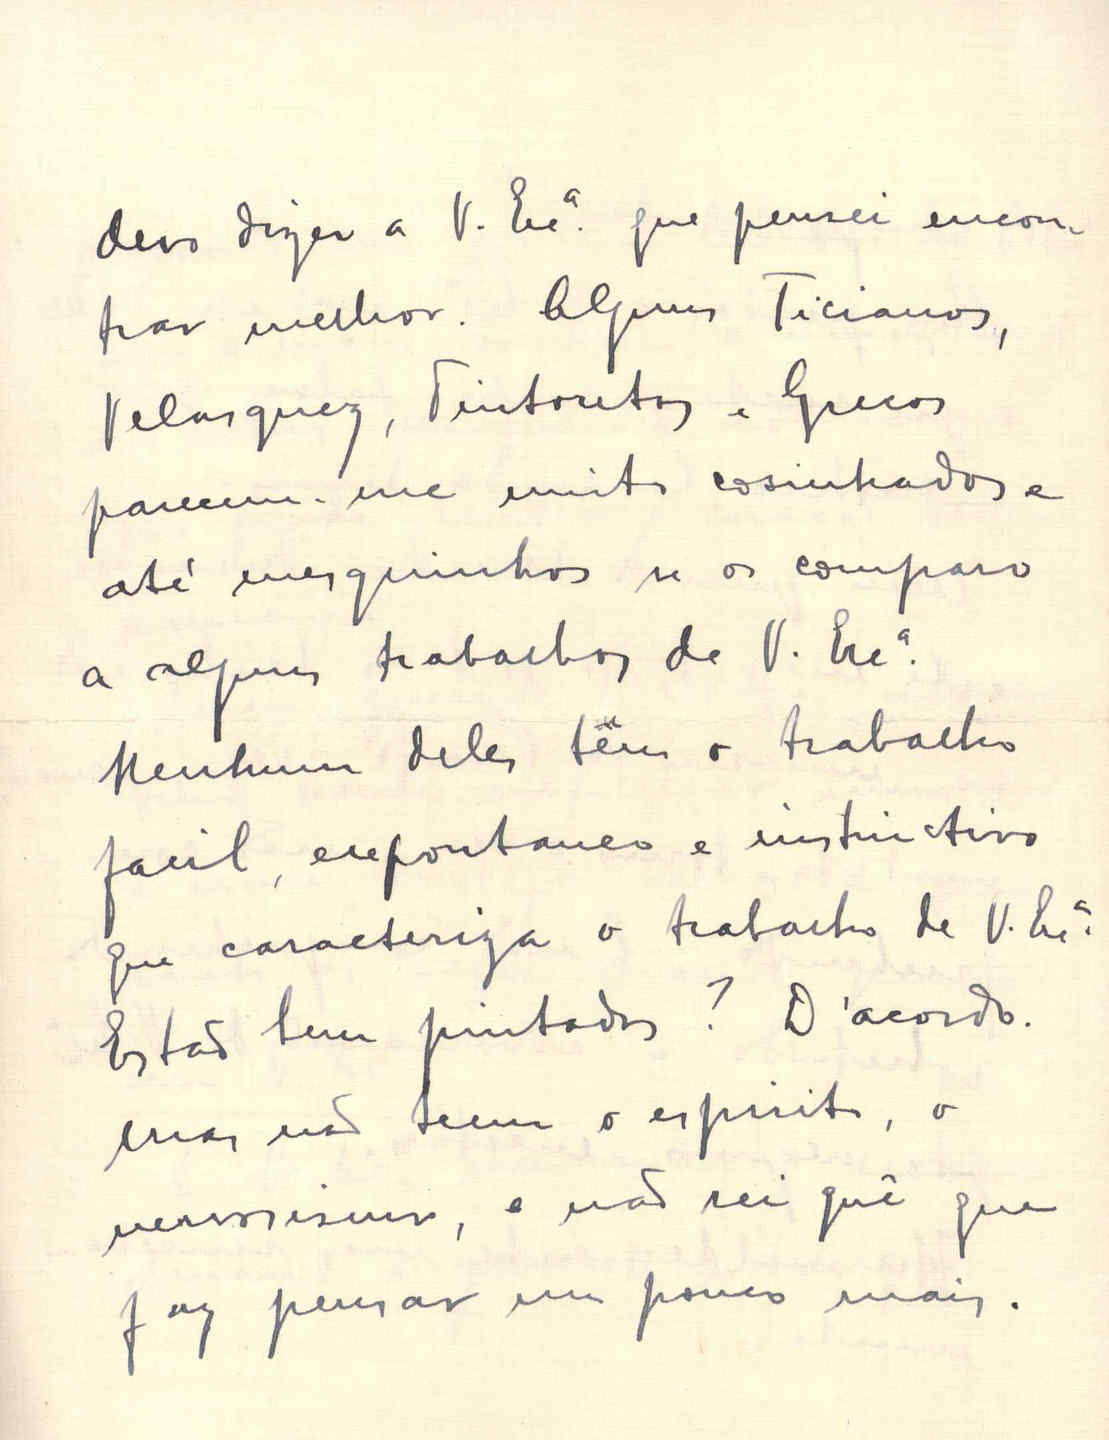 devo dizer a V. Exª. que pensei encon-
trar melhor. Alguns Ticianos,
Velasquez, Tintoretos e Grecos
parecem-me muito cosinhados e
até mesquinhos se os comparo
a alguns trabalhos de V. Exª.
Nenhum deles têm o trabalho
facil, expontaneo e instinctivo
que caracteriza o trabalho de V. Exª.
Estão bem pintados? D'acordo.
mas não teem o espirito, o
nervosismo, e não sei quê que
faz pensar um pouco mais.